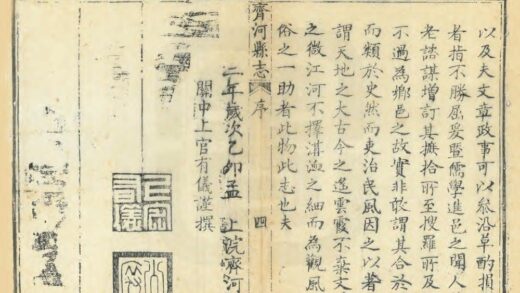 以及夫文章政事可以叅沿革酌損
者指不勝屈爰暨儒學進邑之聞人
老諮諏增訂其摭拾所至搜羅所及
不過為鄉邑之故實非敢謂其合於
而類於史然而吏治民風因之以著
謂天地之大古今之遙雲霞不棄文
之微江河不擇涓澮之細而為觀風
俗之一助者此物此志也夫
齊河縣志 序 四
二年歲次乙卯孟 上浣齊河
關中上官有儀謹撰
上官有儀